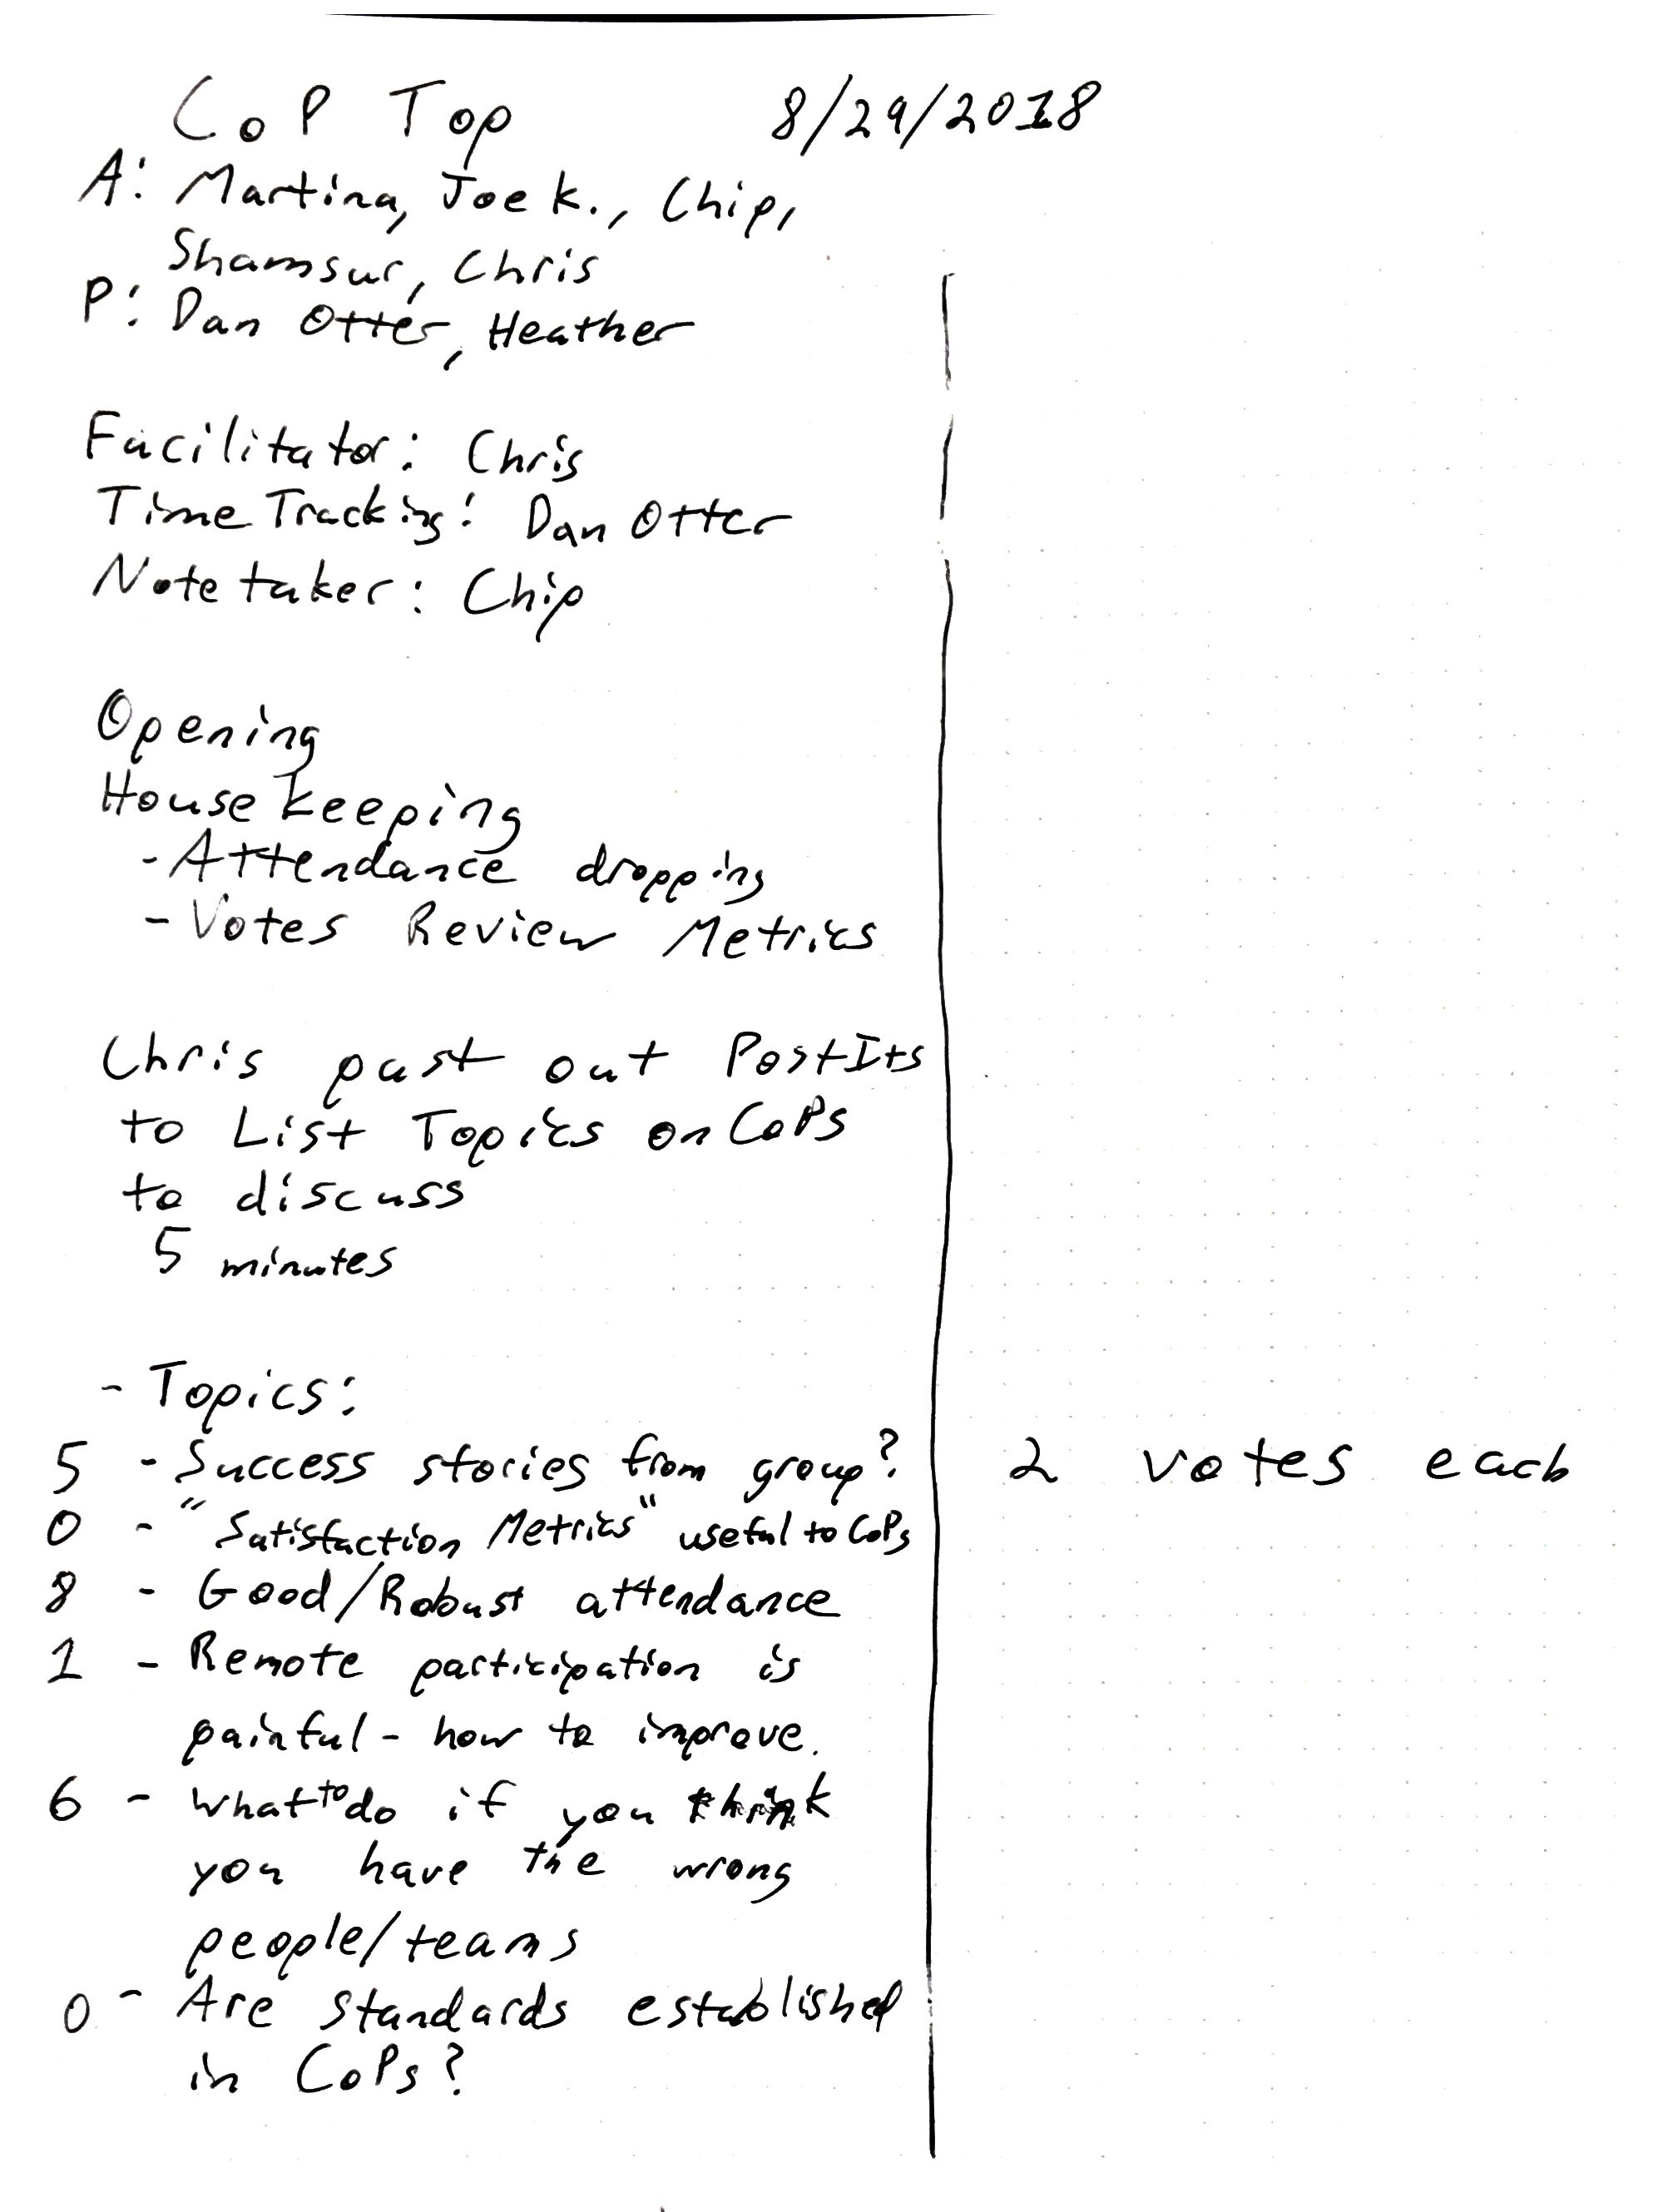 CoP Top 8/29/2018
A: Martina, Joe K., Chip,
Shamsur, Chris
P: Dan Otter, Heather
Facilitator: Chris
Time Tracking: Dan Otter
Note taker: Chip
Opening
House keeping
- Attendance dropping
- Votes Review Metrics
Chris past out PostIts
to List Topics on CoPs
to discuss
5 minutes
- Topics:
5 - Success stories from group? 2 votes each
0 - "Satisfaction Metrics" useful to CoPs
8 - Good/Robust attendance
1 - Remote participation is
painful - how to improve.
6 - What to do if you think
you have the wrong
people/teams
0 - Are standards established
in CoPs?